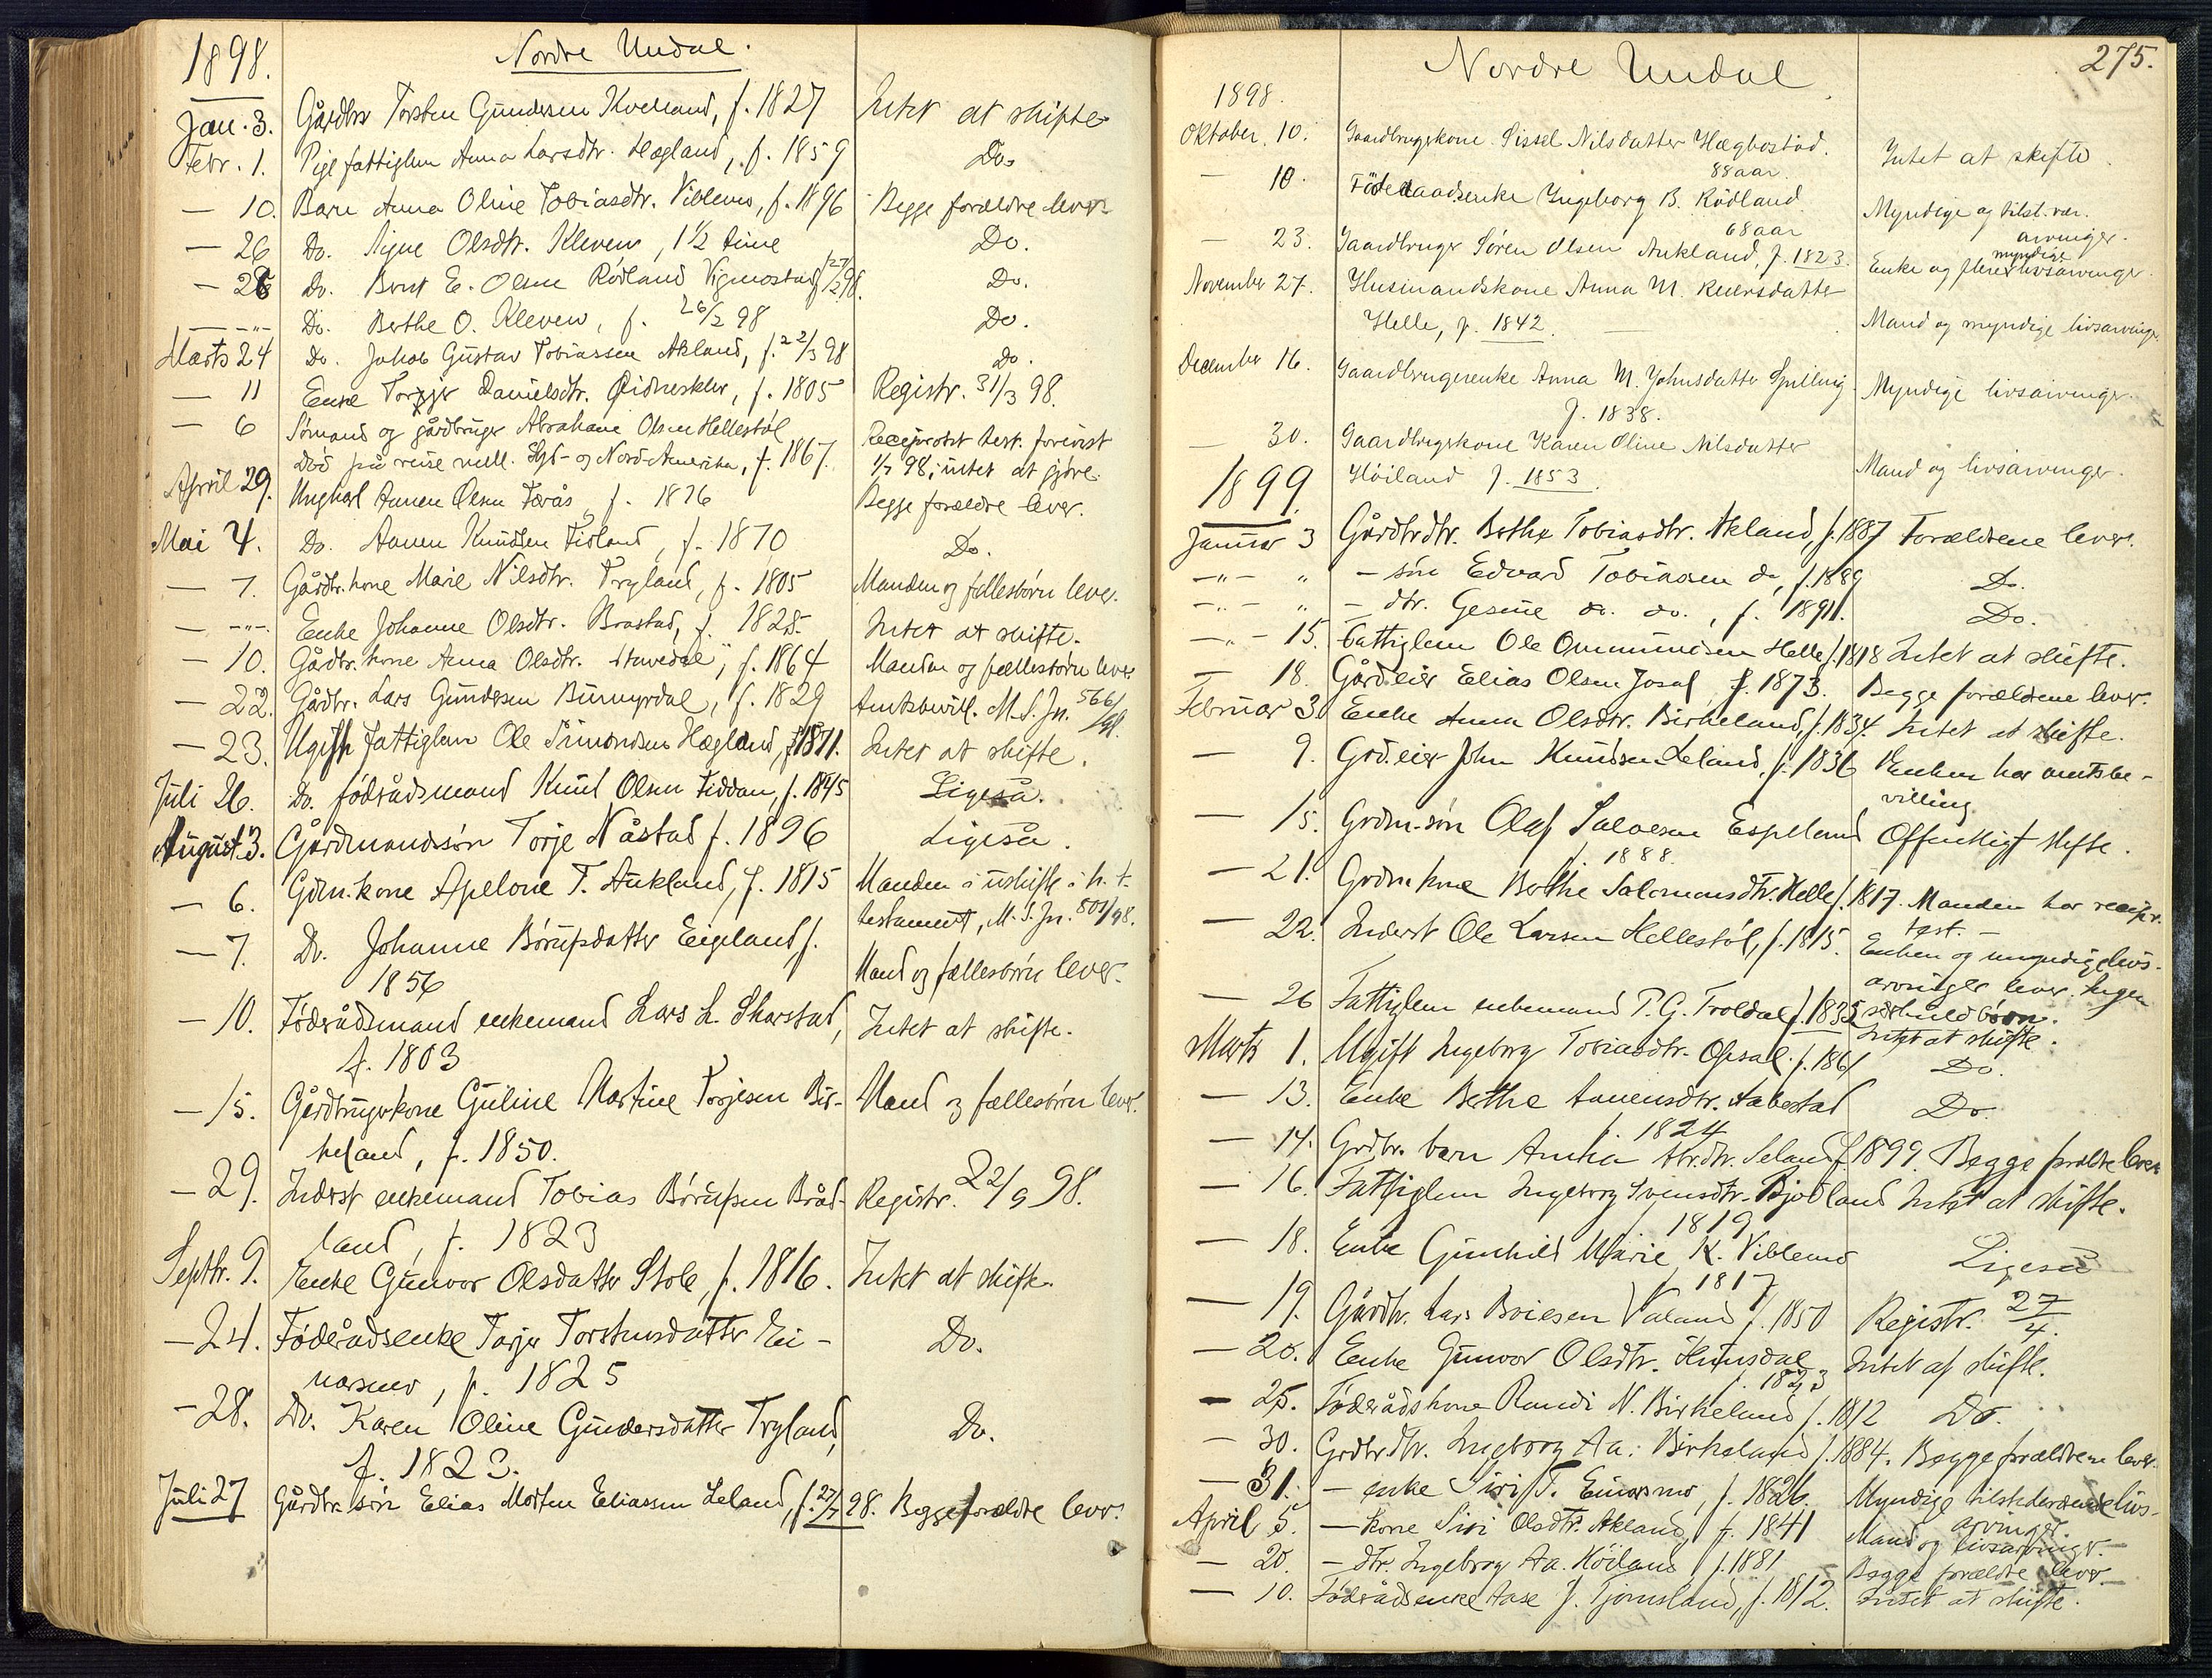 1898. Nordre Undal.
Jan. 3. Gårdbr Torsten Gundersen Kvelland, f. 1827 Intet at skifte
Febr. 1. Pige fattiglem Anna Larsdtr. Hægland, f. 1859 Do.
— 10. Barn Anna Oline Tobiasdtr. Viblemo, f. 1896 Begge forældre lever
— 26 Do. Signe Olsdtr. Kleven, 1½ time Do.
— 28 Do. Bernt E. Olsen Rödland Vigmostad, 98. Do.
— -"- Do. Berthe O. Kleven, f. 26/2 98 Do.
Marts 24 Do. Jakob Gustav Tobiassen Akland, f. 22/3 98 Do.
— 11 Enke Torjer Danielsdtr. Øidnesklev, f. 1805 Registr. 31/3 98.
— 6 Sömand og gårdbruger Abraham Olsen Hellestöl Reciprokt test. forevist
död på reise mell. Syd- og Nord-Amerika, f. 1867. 1/7 98; intet at gjöre.
April 29. Ungkarl Aanen Olsen Færås, f. 1876 Begge forældre lever.
Mai 4. Do. Aanen Knudsen Fidland, f. 1870 Do.
— 7. Gårdbr.kone Marie Nilsdtr. Tryland, f. 1805 Manden og fællesbörn lever.
— -"- Enke Johanne Olsdtr. Brastad, f. 1828. Intet at skifte.
— 10. Gårdbr.kone Anna Olsdtr. f. 1864 Manden og fællesbörn lever
— 22. Gårdbr. Lars Gundersen Buemyrdal, f. 1829 Amtsbevill. M.S.Jn. 566/98.
— 23. Ugift fattiglem Ole Simonsen Hægland, f. 1871. Intet at skifte.
Juli 26. Do. födrådsmand Knut Olsen Fiddan, f. 1845 Ligeså.
August 3. Gårdmandssön Torje Nåstad f. 1896 Ligeså.
— 6. Gdm.kone Apelone T. Aukland, f. 1815 Manden i uskifte i h. t.
testament, M.S.Jn. 801/98.
— 7. Do. Johanne Börufsdatter Eigeland, f.
1856 Mand og fællesbörn lever.
— 10. Föderådsmand enkemand Lars L. Skarstad, Intet at skifte.
f. 1803
— 15. Gårdbrugerkone Guline Martine Torjesen Bir- Mand og fællesbörn lever.
keland, f. 1850.
— 29. Inderst enkemand Tobias Börufsen Bråd- Registr. 22/9 98.
land, f. 1823
Septbr. 9. Enke Gunvor Olsdatter Stole, f. 1816. Intet at skifte.
— 24. Föderådsenke Torjer Torstensdatter Ei- Do.
narsmo, f. 1825
— 28. Do. Karen Oline Gundersdatter Tryland, Do.
f. 1823.
Juli 27 Gårdbr.sön Elias Morten Eliassen Leland, f. 27/7 98. Begge forældre lever.
275.
Nordre Undal
1898.
Oktober. 10. Gaardbrugerkone Sissel Nilsdatter Hægbostad. Intet at skifte.
88 aar.
— 10. Föderaadsenke Ingeborg B. Rödland Myndige og tilst. vær.
68 aar arvinger.
— 23. Gaardbruger Sören Olsen Aukland, f. 1823. Enke og flere myndige livsarvinger.
November 27. Husmandskone Anna M. Reiersdatter
Helle, f. 1842. Mand og myndige livsarvinger
December 16. Gaardbrugerenke Anna M. Johnsdatter Spilling Myndige livsarvinger.
f. 1838.
— 30. Gaardbrugerkone Karen Oline Nilsdatter
Höiland f. 1853. Mand og livsarvinger.
1899.
Januar 3 Gårdbrdtr. Berthe Tobiasdtr. Akland, f. 1887 Forældrene lever.
-"- " — sön Edvard Tobiassen do, f. 1889 Do.
-"- " — dtr. Gesine do. do., f. 1891. Do.
-"- 15. Fattiglem Ole Ommundsen Helle f. 1818 Intet at skifte.
— 18. Gårdeier Elias Olsen Josal, f. 1873. Begge forældrene lever.
Februar 3. Enke Anna Olsdtr. Birkeland, f. 1834. Intet at skifte.
— 9. Grdeier John Knudsen Leland, f. 1836 Enken har amtsbe-
villing
— 15. Grdm.sön Olaf Salvesen Espeland Offentligt skifte.
f. 1888.
— 21. Grdm.kone Berthe Salomonsdtr. Helle f. 1817. Manden har recipr.
test. —
— 22. Inderst Ole Larsen Hellestöl, f. 1815. Enken og umyndige livs-
arvinger lever. Ingen
særkuldbörn.
— 26 Fattiglem enkemand P. G. Troldal f. 1835 Intet at skifte.
Marts 1. Ugift Ingeborg Tobiasdtr. Opsal f. 1861 Do.
— 13. Enke Berthe Aanensdtr. Aabestad Do.
f. 1824
— 14. Grdbr. barn Anna Abr.dtr. Leland f. 1899. Begge foreldre lever
— 16. Fattiglem Ingeborg Svensdtr. Bjodland Intet at skifte.
f. 1819
— 18. Enke Gunhild Marie K. Viblemo Ligeså
f. 1817
— 19. Gårdbr. Lars Boiesen Valand f. 1850 Registr. 27/4.
— 20. Enke Gunvor Olsdtr. Hunsdal Intet at skifte.
f. 1823
— 25. Föderådskone Randi N. Birkeland f. 1812 Do.
— 30. Grdbrdtr. Ingeborg Aa. Birkeland f. 1884. Begge forældrene lever.
— 31. — enke Siri T. Einarsmo, f. 1826. Myndige tilstedeværende livs-
arvinger.
April 5. — kone Siri Olsdtr. Akland, f. 1841 Mand og livsarvinger.
— 20. — dtr. Ingeborg Aa. Höiland f. 1881 Begge forældre lever
— 10. Föderådsenke Aase J. Tjomsland, f. 1812. Intet at skifte.